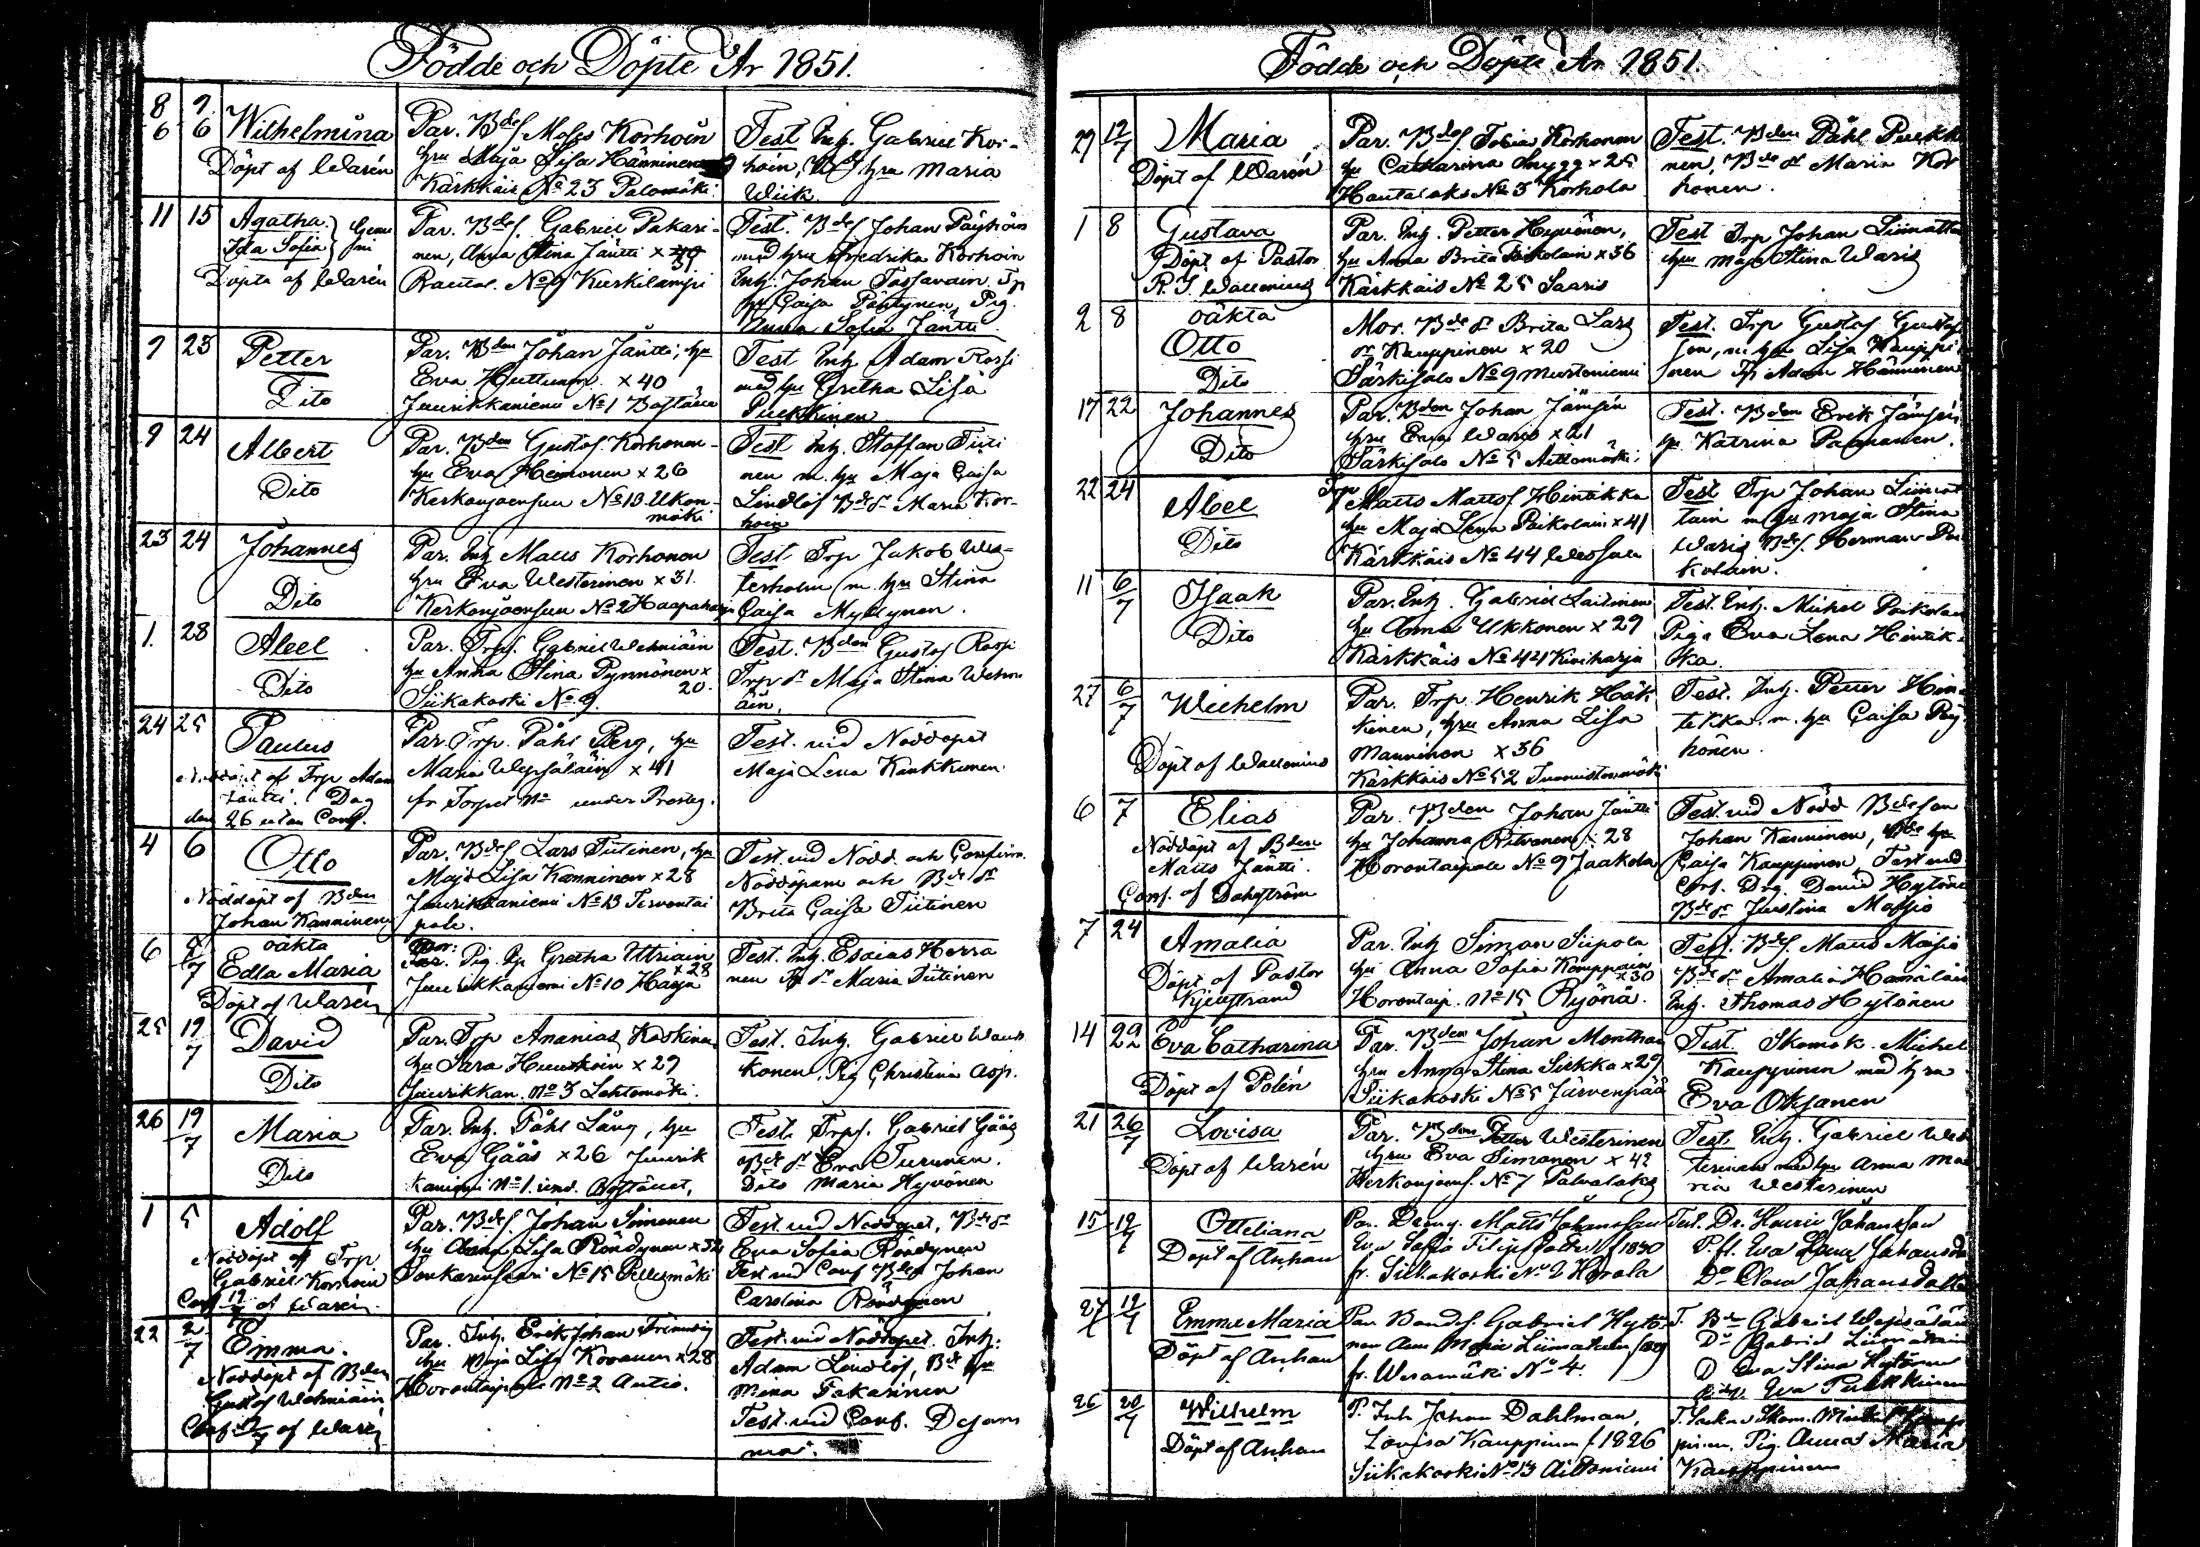 Födde och Döpte År 1851.
8/6 9/6 Wilhelmina
Döpt af Warén
Par. Bdes. Moses Korhoin
hru Maja Lisa Hänninen
Kärkkäis No 23 Palomäki
Test. Inh. Gabriel Kor-
hoin, hru Maria
Wiik
11 15 Agatha
Ida Sofia
Döpta af Warén
Par. Bdes. Gabriel Pakari-
nen, Anna Stina Jäntti x
31
Rautal. No 9 Kurkilampi
Test. Bdes Johan Päyhöin
med hru Fredrika Korhoin
Inh. Johan Tossavain
Caisa Pöntynen, Pig.
Anna Sofia Jäntti
9 23 Petter
Dito
Par. Bden Johan Jäntti, hu
Eva Huttunen x 40
Juurikkaniemi No 1
Test Inh. Adam Rossi
med hu Gretha Lisa
Pulkkinen
9 24 Albert
Dito
Par. Bden Gustaf Korhonen
hu Eva Hemonen x 26
Kerkonjoensuu No 13 Ukon-
mäki
Test Inh. Staffan Tiiti
nen m. hu Maja Caisa
Lindlöf Bde dr Maria Kor-
hoin
23 24 Johannes
Dito
Par. Inh Matts Korhonen
hru Eva Westerinen x 31.
Kerkonjoensuu No 2 Haapaharju
Test Trp Jakob Wes-
terholm m. hru Stina
Caisa Myllynen.
1. 28 Abel
Dito
Par. Trps. Gabriel Wehmiäin
hu Anna Stina Pynnönen x
20.
Siikakoski No 9.
Test. Bden Gustaf Rossi
Trp dr Maja Stina Wehmi
äin.
24 25 Paulus
Nöddöpt af Trp Adam
Jäntti. Dag
den 26 utan Conf.
Par. Trp. Påhl Berg, hu
Maria Wepsäläin x 41
fr Torpet No under Presteg.
Test. vid Nöddopet
Maja Lena Kaukkunen
4 6 Otto
Nöddöpt af Bden
Johan Kanninen
Par. Bdes Lars Tiitinen, hu
Maja Lisa Kanninen x 28
Juurikkaniemi No 13 Tervontai
pale.
Test. vid Nödd. och Confirm.
Nöddöparn och Bde dr
Brita Caisa Tiitinen
6 8/7 oäkta
Edla Maria
Döpt af Warén
Mor: Pig. Gretha Uttriain
x 28
Juurikkaniemi No 10 Harju
Test. Inh. Esaias Herra
nen dr Maria Tiitinen
25 19/7 David
Dito
Par. Trp Ananias Koskinen
hu Sara Huuskoin x 29
Juurikkan. No 3 Lehtomäki.
Test. Inh. Gabriel Wauh
konen, Pig Christina Asp.
26 19/7 Maria
Dito
Par. Inh. Påhl Lång, hu
Eva Gåås x 26 Juurik
kaniemi No 1. und. Bostället,
Test. Trps. Gabriel Gåås
Bde dr Eva Turunen.
Dito Maria Hyvönen
1 5 Adolf
Nöddöpt af Trp.
Gabriel Korhoin
Conf. 19/7 af Warén
Par. Bdes. Johan Simonen
hu Anna Lisa Röndynen x 32
Sonkarinsaari No 15 Pellesmäki
Test. vid Nöddopet, Bde dr
Eva Sofia Röndynen
Test vid Conf Bdes Johan
Carolina Röndynen
22 2/7 Emma.
Nöddöpt af Bden
Gustaf Wehmiäin
Conf. 19/7 af Warén
Par. Inh. Erik Johan Friman
hu Maja Lisa Kovanen x 28
Horontaipale No 2 Antio.
Test. vid Nöddopet. Inh:
Adam Lindlöf, Bde hu
Mina Pakarinen
Test. vid Conf. Desam
ma.
Födde och Döpte År 1851.
29 12/7 Maria
Döpt af Warén
Par. Bdes. Tobia Korhonen
hu Catharina Snygg x 25
Hautalaks No 3 Korhola
Test. Bden Påhl Pulkki
nen, Bde dr Maria Kor
honen.
1 8 Gustava
Döpt af Pastor
R. J. Wallenius
Par. Inh. Petter Hyvönen,
hu Anna Brita Paikolain x 36
Kärkkäis No 25 Saaris
Test Trp Johan Liimatta
hru Maja Stina Waris
2 8 oäkta
Otto
Dito
Mor. Bde dr Brita Lars
dr Kauppinen x 20
Särkisalo No 9 Mustoniemi
Test. Trp Gustaf Gustaf
son, m. hru Lisa Kauppi
nen Adam Hänninen
17 22 Johannes
Dito
Par. Bden Johan Jämsén
hru Eva Waris x 21
Särkisalo No 5 Aittomäki
Test. Bden Erik Jämsén
hu Katrina Paananen.
22 24 Abel
Dito
Trp Matts Matts. Hintikka
hu Maja Lena Paikolain x 41
Kärkkäis No 44
Test Trp Johan Liimat
tain m hu Maja Stina
Waris Bdes. Herman Pai
kolain.
11 6/7 Isaak
Dito
Par. Inh. Gabriel Laitinen
hu Anna Ukkonen x 29
Kärkkäis No 44 Kiviharju
Test. Inh. Mickel Paikolain
Piga Eva Lena Hintik-
ka.
27 6/7 Wilhelm
Döpt af Wallenius
Par. Trp. Henrik Häk
kinen, hru Anna Lisa
Manninen x 36
Kärkkäis No 52 Tuomistonmäki
Test. Inh. Petter Hin-
tikka. m. hu Caisa Päy
hönen.
6 7 Elias
Nöddöpt af Bden
Matts Jäntti.
Conf. af Dahlström
Par. Bden Johan Jäntti
hu Johanna Ritvanen x 28
Horontaipale No 9 Jaakola
Test. vid Nödd Bdesson
Johan Kanninen, Bde hu
Caisa Kauppinen, Test vid
Conf. Drg. David Hytöne
Bde dr Justina Massio
7 24 Amalia
Döpt af Pastor
Kjellstrand
Par. Inh Simon Siipola
hu Anna Sofia Kauppain
x 30
Horontaip. No 15 Ryönä.
Test. Bdes. Matts Maisio
Bde dr Amalia Hämäläin
Inh. Thomas Hytönen
14 29/22 Eva Catharina
Döpt af Polén
Par. Bden Johan Monthan
hru Anna Stina Sirkka x 29
Siikakoski No 5 Järvenpää
Test. Skomak. Mickel
Kauppinen med hru
Eva Oksanen
21 26/7 Lovisa
Döpt af Warén
Par. Bden Petter Westerinen
hru Eva Simonen x 42
Kerkonjoens. No 7 Palvalaks
Test. Inh. Gabriel Wes
terinen med hu Anna Ma
ria Westerinen
15 19/7 Otteliana
Döpt af Anhan
Par. Dreng. Matts Johansson
Eva Sofia Filipsdotter f 1830
fr. Siikakoski No 2 Horola
Test. Dr. Henric Johansson
P.fl. Eva Lena Johansd
Do Clara Johansdotter
27 19/7 Emma Maria
Döpt af Anhan
Par Bondes. Gabriel Hytö-
nen Maria Liimatain
fr. Wesamäki No 4.
T. Bde Gabriel Wepsäläin
Do Gabriel Liimatain
D Eva Stina Hytönen
Eva Pulkkinen
26 20/7 Wilhelm
Döpt af Anhan
P. Inh Johan Dahlman,
Lovisa Kauppinen f. 1826
Siikakoski No 13 Aittoniemi
T. Skom. Mickel Kaup
pinen. Pig. Anna Maria
Kauppinen